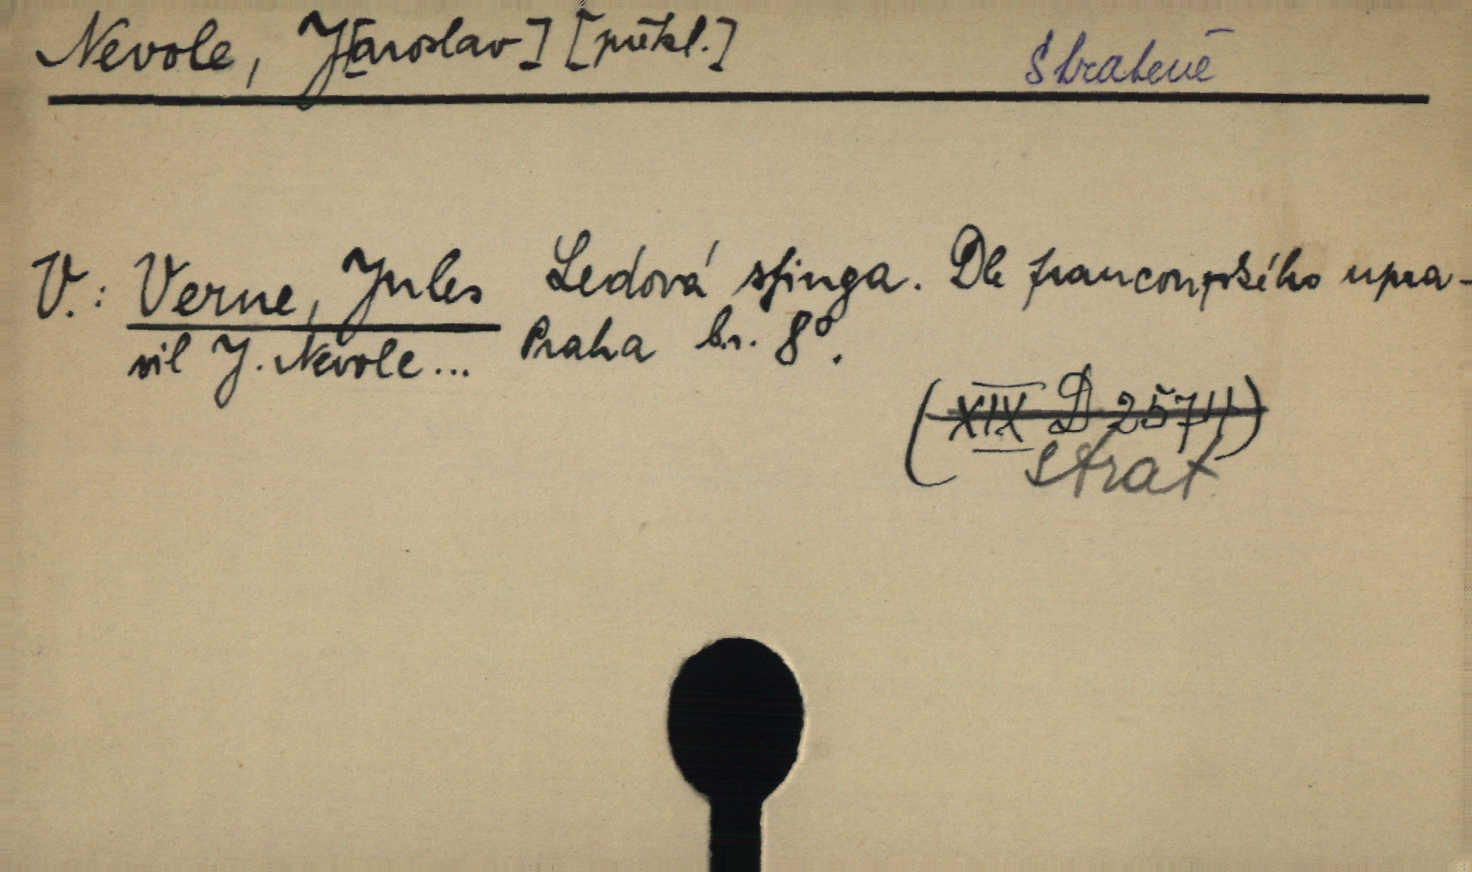 Nevole, J[aroslav] [překl.] Ztracené
V.: Verne, Jules Ledová sfinga. Dle francouzského upra-
vil J. Nevole... Praha b.r. 8°.
(XIX D 2574)
ztrat